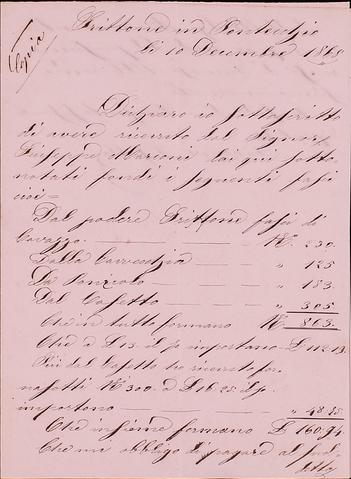 Copia
Grittone in Pontecchio
Li 10 Decembre 1868
Dichiaro io sottoscritto
di avere ricevuto dal Signor
Giuseppe Marconi dai qui sotto
notati fondi i seguenti fasci
cioè =
Dal podere Grittone fasci di
Cavazzo N.° 250.
Dalla " 125
Da " 183.
Dal Casetto " 305
Che in tutto formano N.° 863.
Che a £ 13. il importano £ 112.13.
Più dal Casetto ho ricevuto
N.° 300. a £ 16 25 il
importono " 48.75
Che insieme formano £ 160.94.
Che mi obbligo di pagare al